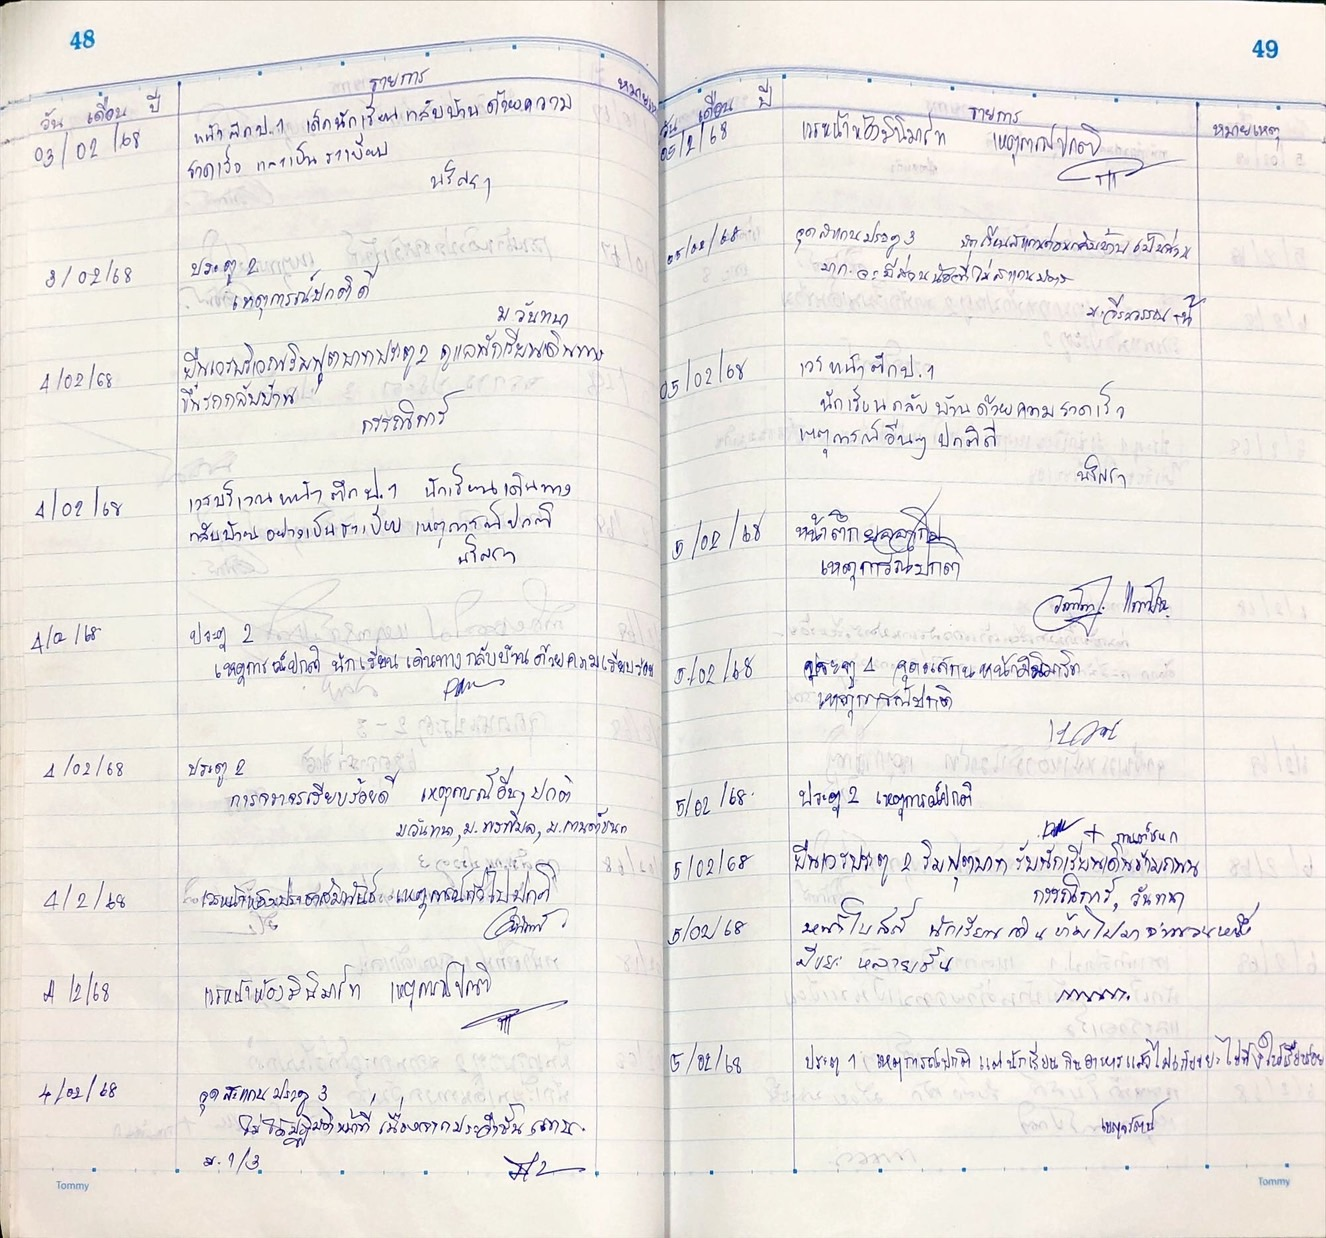 48
วัน เดือน ปี
รายการ
หมายเหตุ
03/02/68
หน้าตึก ป.1 เด็กนักเรียนกลับบ้านด้วยความ
รวดเร็ว และเป็นระเบียบ
นริศรา
3/02/68
ประตู 2
เหตุการณ์ปกติดี
ม.วันทนา
4/02/68
ยืนเวรบริเวณริมฟุตบาทประตู 2 ดูแลนักเรียนเดินทาง
ขึ้นรถกลับบ้าน
กรรณิการ์
4/02/68
เวรบริเวณหน้าตึก ป.1 นักเรียนเดินทาง
กลับบ้านอย่างเป็นระเบียบ เหตุการณ์ปกติ
นริศรา
4/2/68
ประตู 2
เหตุการณ์ปกติ นักเรียนเดินทางกลับบ้านด้วยความเรียบร้อย
4/02/68
ประตู 2
การจราจรเรียบร้อยดี เหตุการณ์อื่นๆ ปกติ
ม.วันทนา, ม.
4/2/68
เวรหน้าห้องประชาสัมพันธ์ เหตุการณ์ทั่วไปปกติ
4/2/68
เวรหน้าห้องมินิมาร์ท เหตุการณ์ปกติ
4/02/68
จุดสแกนประตู 3
ไม่ได้ปฏิบัติหน้าที่ เนื่องจากประจำชั้นแทน
ม.1/3
Tommy
49
วัน เดือน ปี
รายการ
หมายเหตุ
05/2/68
เวรหน้าห้องมินิมาร์ท เหตุการณ์ปกติ
05/02/68
จุดสแกนประตู 3 นักเรียนสแกนก่อนกลับบ้านเป็นส่วน
มาก จะมีส่วนน้อยที่ไม่สแกน
05/02/68
เวรหน้าตึก ป.1
นักเรียนกลับบ้านด้วยความรวดเร็ว
เหตุการณ์อื่นๆ ปกติดี
นริศรา
5/02/68
หน้าตึก
เหตุการณ์ปกติ
5/02/68
ประตู 4 จุดสแกนหน้ามินิมาร์ท
เหตุการณ์ปกติ
5/02/68
ประตู 2 เหตุการณ์ปกติ
+
5/02/68
ยืนเวรประตู 2 ริมฟุตบาท รับนักเรียนเดินข้ามถนน
กรรณิการ์, วันทนา
5/02/68
นักเรียนเดิน
มีขยะ หลายชิ้น
5/02/68
ประตู 1 เหตุการณ์ปกติ แต่นักเรียนกินอาหารแล้วไม่เก็บขยะไปทิ้งให้เรียบร้อย
Tommy